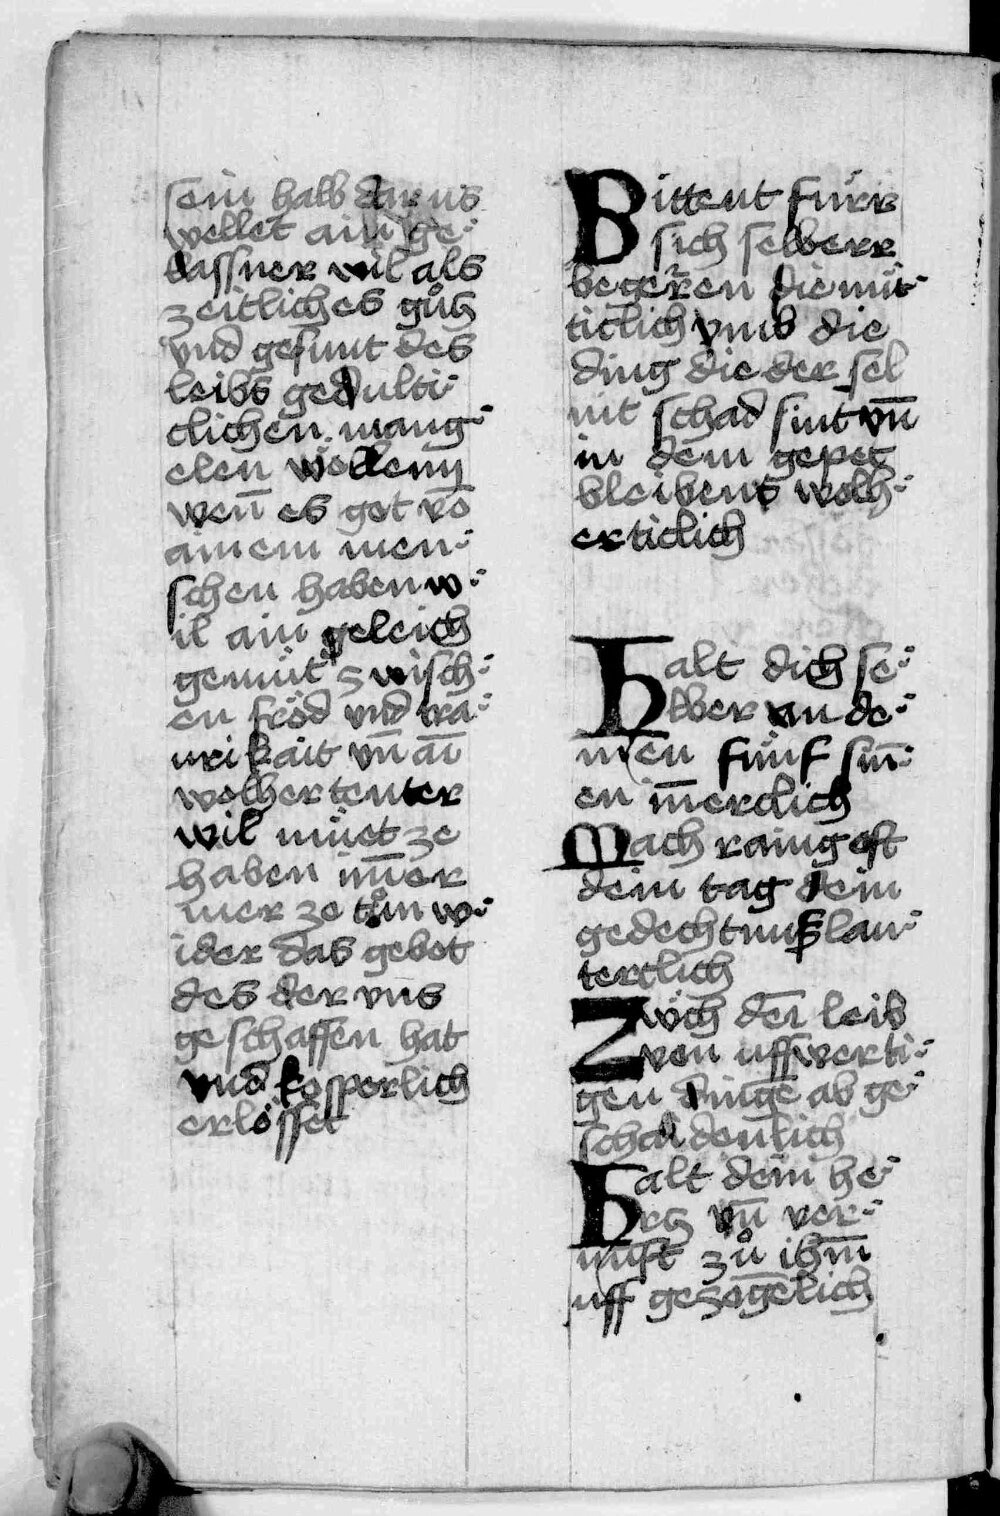 sein halb dar us
wellet ain ge⸗
lassner wil als
zeitliches guͦtz
vnd gesunt des
leibs gedulti
clichen mang⸗
elen woͤllenn
wen̄ es got vō
ainem men⸗
schen haben w⸗
il ain geleich
gemuͤt zwisch⸗
en froͤd vnd tra⸗
urikait vn̄ aī
wolhertenter
wil muͤet ze
haben im̄er
mer ze tuͦn w⸗
ider das gebot
des der vns
geschaffen hat
vnd kosperlich
erloͤsset
Bittent fuͤrr
sich selberr
begeren diemuͤ⸗
ticlich vmb die
ding die der sel
nit schad sint vn̄
in dem gepet
bleibent wolh⸗
erticlich
Halt dich se⸗
lber an de⸗
inen fuͤnf sin̄⸗
en in̄erclich
Mach raing oft
dein tag dein
gedechtnuß lau⸗
terclich
Zuͤch den leib
von usswerti⸗
gen dingē ab ge⸗
schaidenlich
Halt dein he⸗
rtz vn̄ ver⸗
nuft zuͦ ihm̄
uff gezogēlich